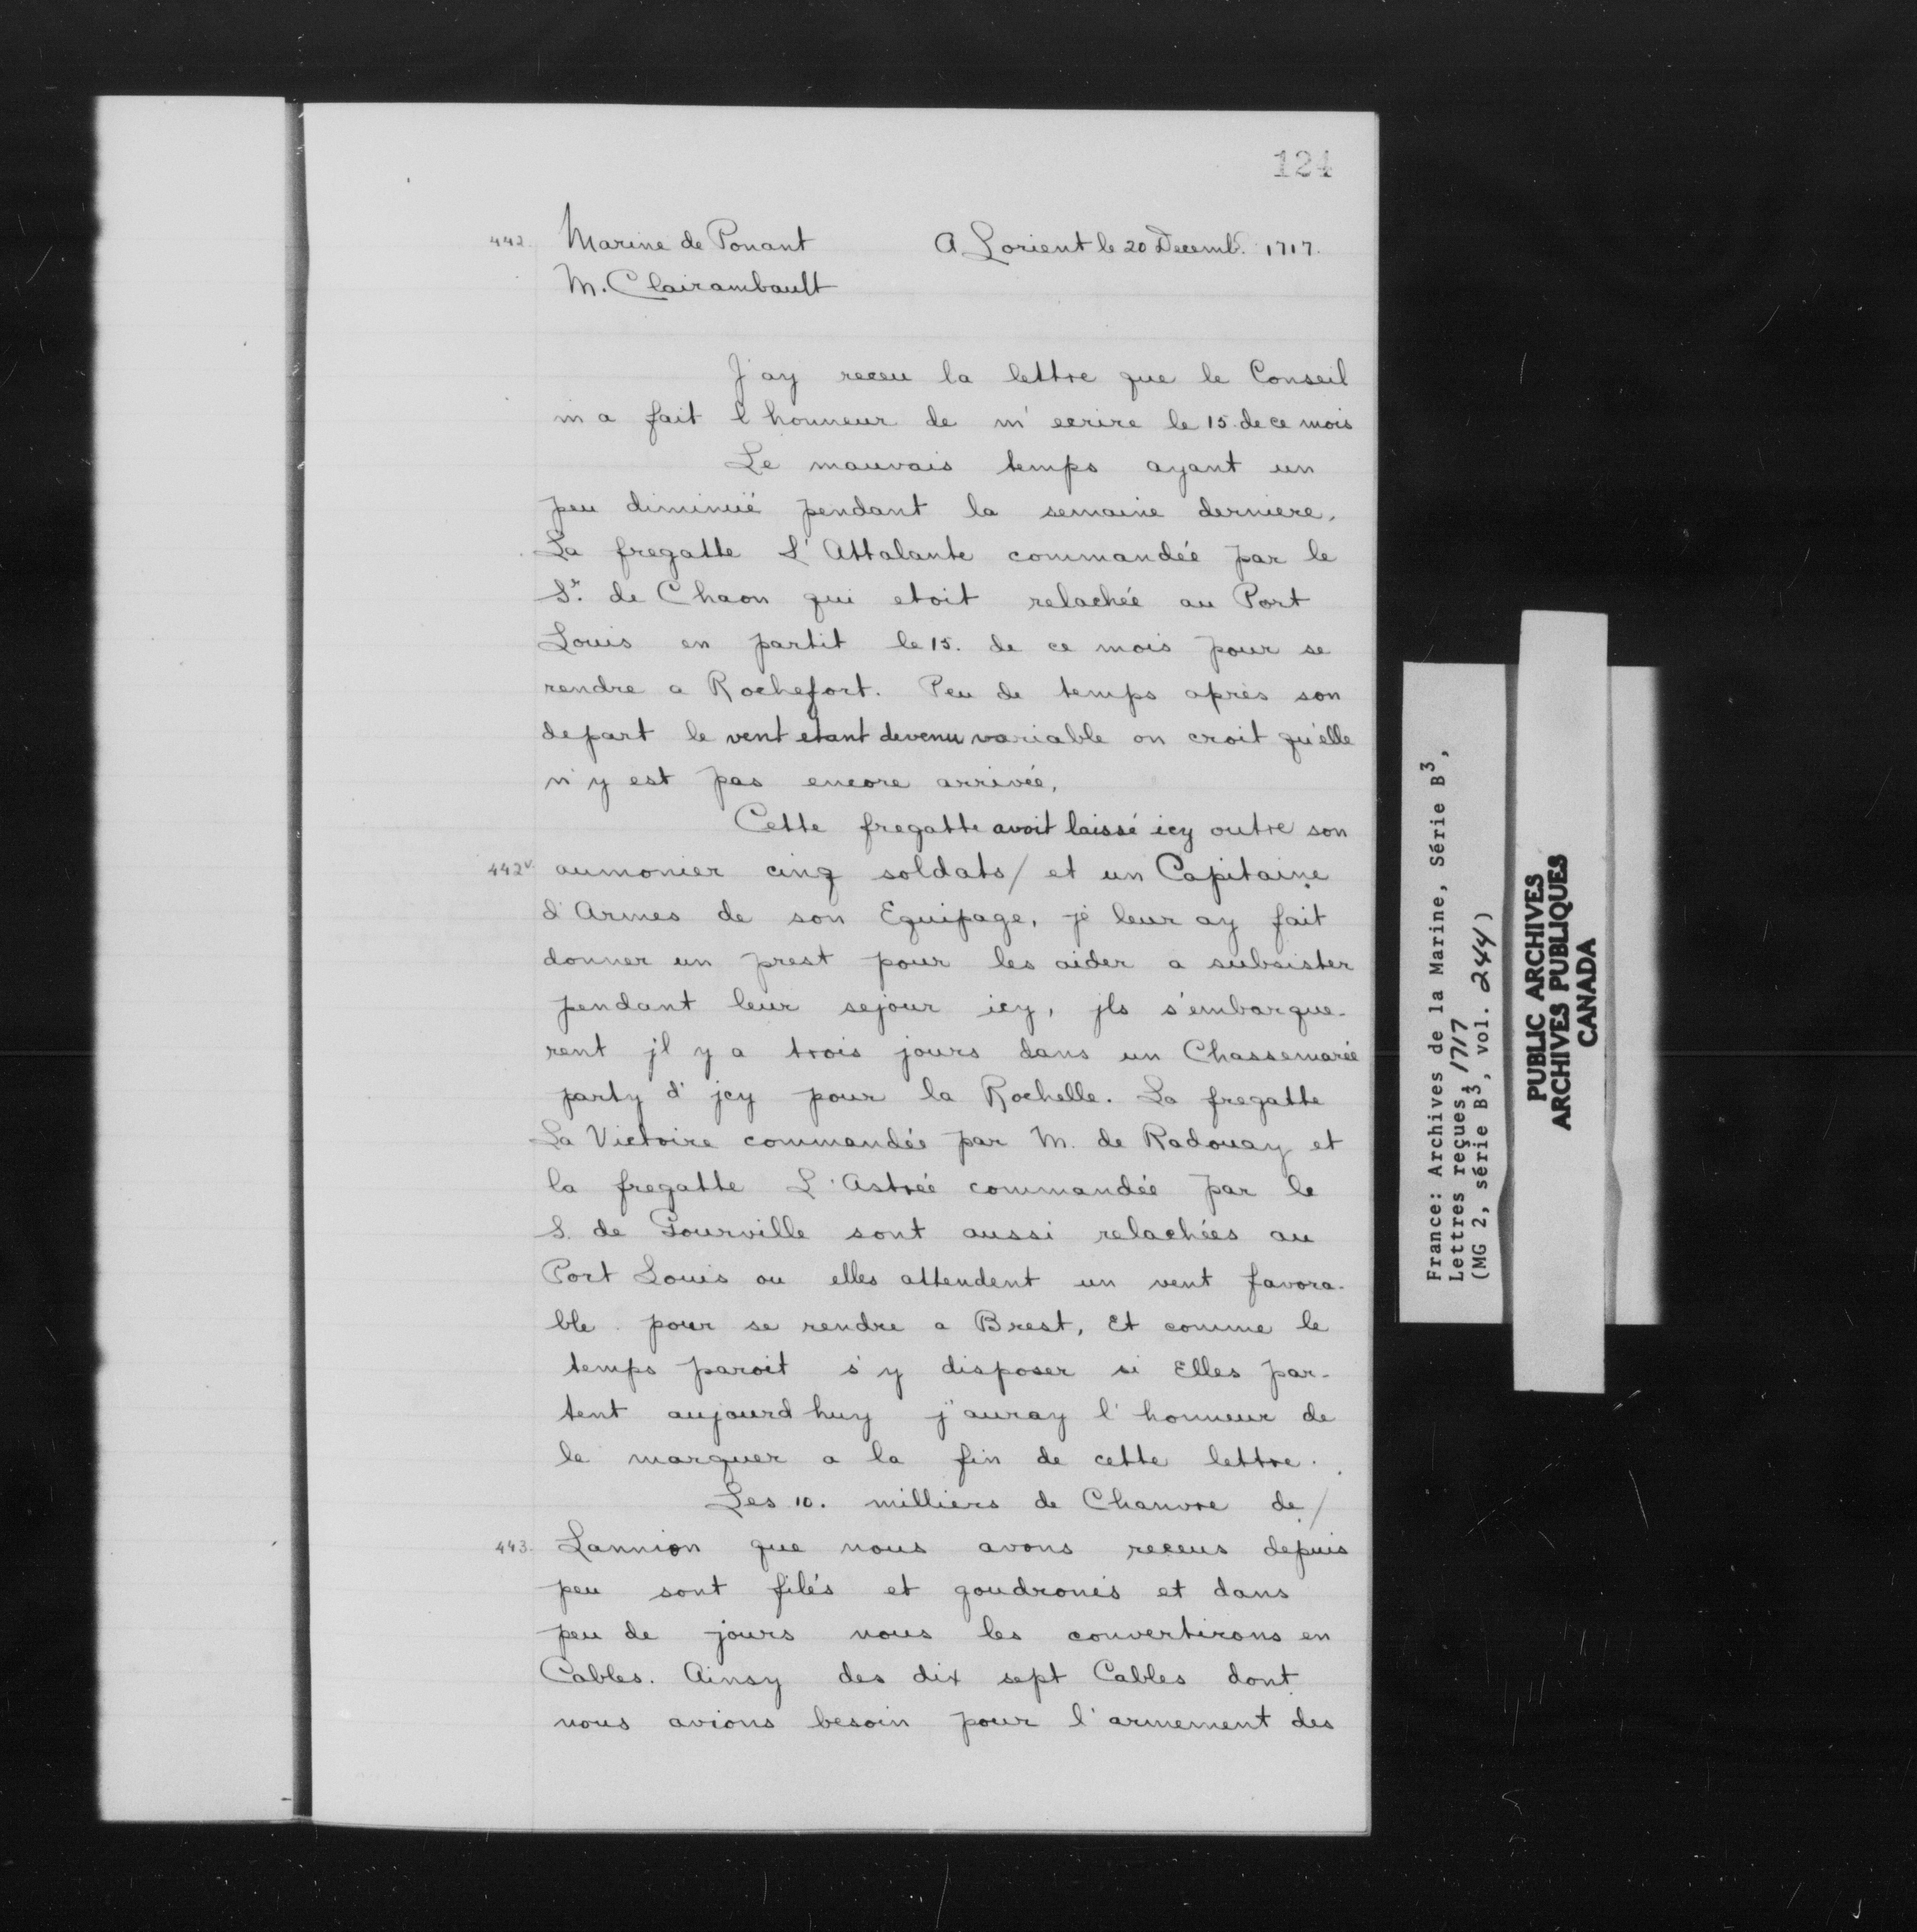 124
442. Marine de Ponant A Lorient le 20 Decemb. 1717.
M. Clairambault
J'ay receu la lettre que le Conseil
m'a fait l'honneur de m'ecrire le 15. de ce mois
Le mauvais temps ayant un
peu diminüé pendant la semaine derniere,
La fregatte L'Attalante commandée par le
Sr. de Chaon qui etoit relachée au Port
Louis en partit le 15. de ce mois pour se
rendre a Rochefort. Peu de temps après son
depart le vent etant devenu variable on croit qu'elle
n'y est pas encore arrivée,
Cette fregatte avoit laissé icy outre son
442v. aumonier cinq soldats / et un Capitaine
d'Armes de son Equipage, je leur ay fait
donner un prest pour les aider a subsister
pendant leur sejour icy, jls s'embarque-
rent jl y a trois jours dans un Chassemarée
party d'jcy pour la Rochelle. La fregatte
La Victoire commandée par M. de Radouay et
la fregatte L'Astrée commandée par le
S. de Gourville sont aussi relachées au
Port Louis ou elles attendent un vent favora-
ble pour se rendre a Brest, Et comme le
temps paroit s'y disposer si Elles par-
tent aujourd huy j'auray l'honneur de
le marquer a la fin de cette lettre.
Les 10. milliers de Chanvre de /
443. Lannion que nous avons receus depuis
peu sont filés et goudronés et dans
peu de jours nous les convertirons en
Cables. Ainsy des dix sept Cables dont
nous avions besoin pour l'armement des
France: Archives de la Marine, Série B3,
Lettres reçues, 1717
(MG 2, série B3, vol. 244)
PUBLIC ARCHIVES
ARCHIVES PUBLIQUES
CANADA